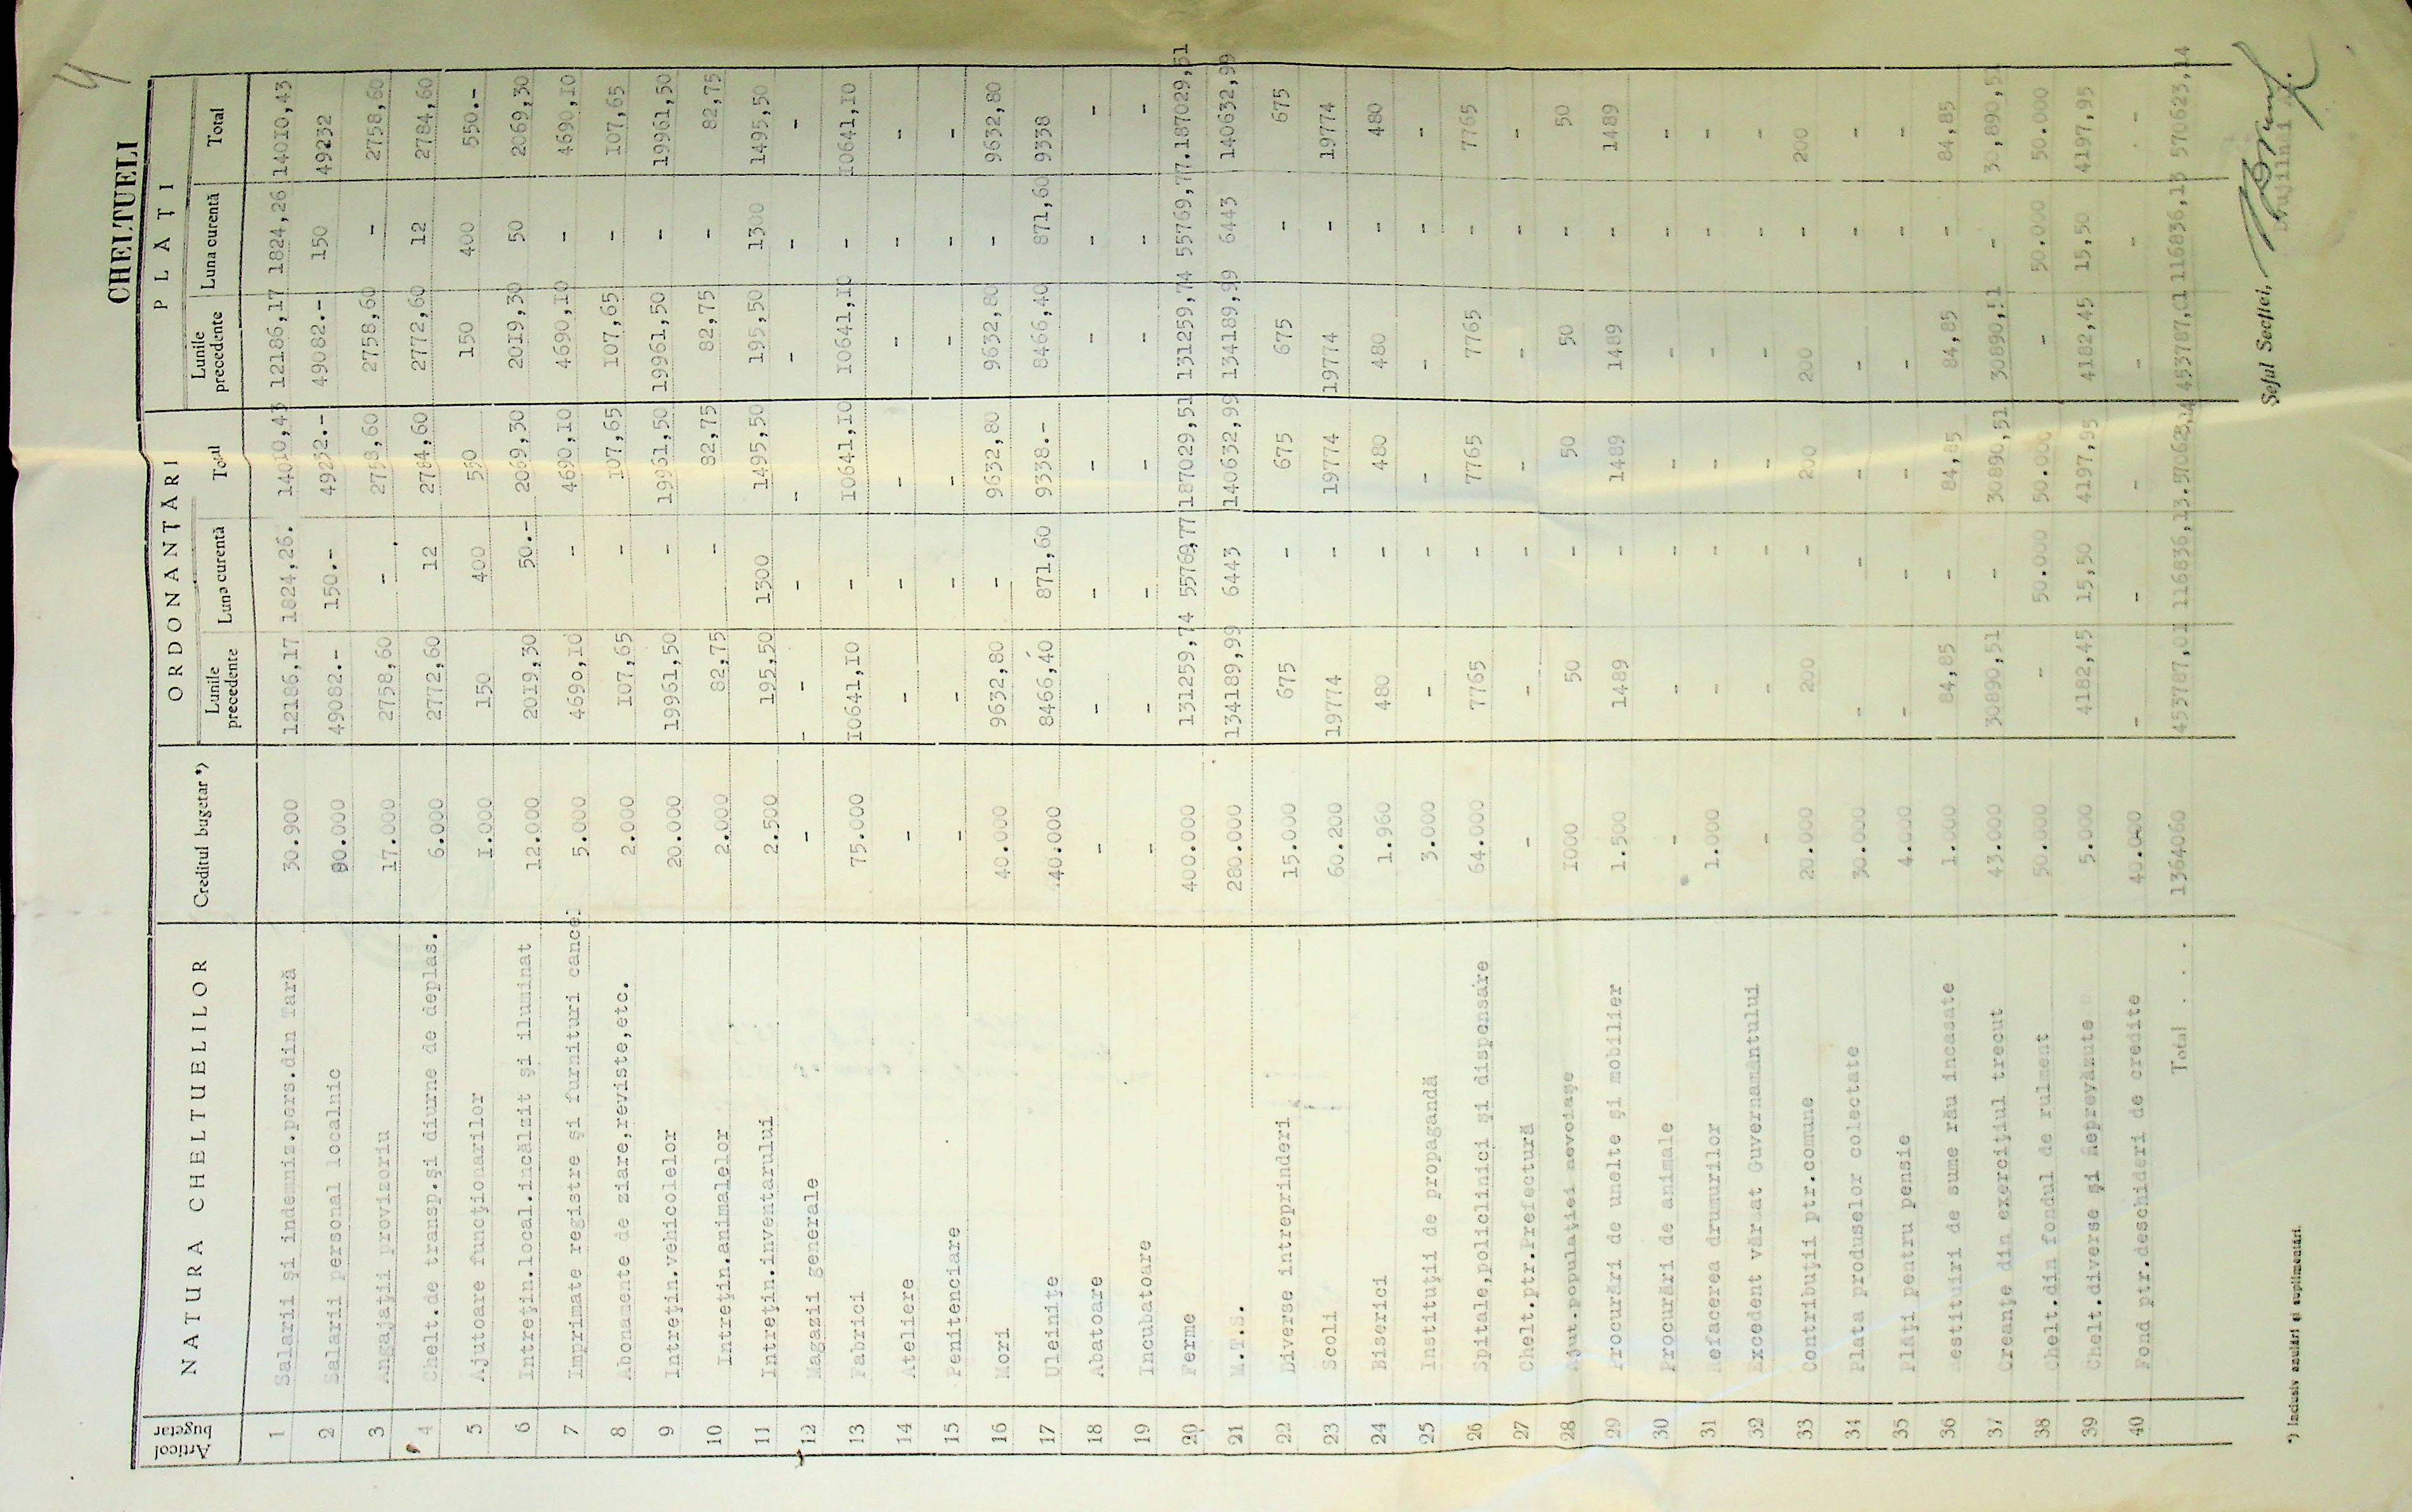 4
CHELTUELI
Articol bugetar NATURA CHELTUELILOR Creditul bugetar *) ORDONANȚĂRI PLĂȚI
Lunile precedente Luna curentă Total Lunile precedente Luna curentă Total
1 Salarii și indemniz.pers.din Țară 30.900 12186,17 1824,26. 14010,43 12186,17 1824,26 14010,43
2 Salarii personal localnic 90.000 49082.- 150.- 49232.- 49082.- 150 49232
3 Angajații provizoriu 17.000 2758,60 - 2758,60 2758,60 - 2758,60
4 Chelt.de transp.și diurne de deplas. 6.000 2772,60 12 2784,60 2772,60 12 2784,60
5 Ajutoare funcționarilor 1.000 150 400 550 150 400 550.-
6 Intrețin.local.incălzit și iluminat 12.000 2019,30 50.- 2069,30 2019,30 50 2069,30
7 Imprimate registre și furnituri cancel 5.000 4690,10 - 4690,10 4690,10 - 4690,10
8 Abonamente de ziare,reviste,etc. 2.000 107,65 - 107,65 107,65 - 107,65
9 Intrețin.vehicolelor 20.000 19961,50 - 19961,50 19961,50 - 19961,50
10 Intrețin.animalelor 2.000 82,75 - 82,75 82,75 - 82,75
11 Intrețin.inventarului 2.500 195,50 1300 1495,50 195,50 1300 1495,50
12 Magazii generale - - - - - - -
13 Fabrici 75.000 10641,10 - 10641,10 10641,10 - 10641,10
14 Ateliere - - - - - - -
15 Penitenciare - - - - - - -
16 Mori 40.000 9632,80 - 9632,80 9632,80 - 9632,80
17 Uleinițe 40.000 8466,40 871,60 9338.- 8466,40 871,60 9338
18 Abatoare - - - - - - -
19 Incubatoare - - - - - - -
20 Ferme 400.000 131259,74 55769,77 187029,51 131259,74 55769,77. 187029,51
21 M.T.S. 280.000 134189,99 6443 140632,99 134189,99 6443 140632,99
22 Diverse intreprinderi 15.000 675 - 675 675 - 675
23 Scoli 60.200 19774 - 19774 19774 - 19774
24 Biserici 1.960 480 - 480 480 - 480
25 Instituții de propagandă 3.000 - - - - - -
26 Spitale,policlinici și dispensare 64.000 7765 - 7765 7765 - 7765
27 Chelt.ptr.Prefectură - - - - - - -
28 Ajut.populației nevoiașe 1000 50 - 50 50 - 50
29 Procurări de unelte și mobilier 1.500 1489 - 1489 1489 - 1489
30 Procurări de animale - - - - - - -
31 Refacerea drumurilor 1.000 - - - - - -
32 Excedent vărsat Guvernamântului - - - - - - -
33 Contribuții ptr.comune 20.000 200 - 200 200 - 200
34 Plata produselor colectate 30.000 - - - - - -
35 Plăți pentru pensie 4.000 - - - - - -
36 Restituiri de sume rău incasate 1.000 84,85 - 84,85 84,85 - 84,85
37 Creanțe din exercițiul trecut 43.000 30890,51 - 30890,51 30890,51 - 30,890,51
38 Chelt.din fondul de rulment 50.000 - 50.000 50.000 - 50.000 50.000
39 Chelt.diverse și neprevăzute 5.000 4182,45 15,50 4197,95 4182,45 15,50 4197,95
40 Fond ptr.deschideri de credite 40.000 - - - - - -
Total . . . 1364060 453787,01 116836,13. 570623,14 453787,01 116836,13 570623,14
Șeful Secției,
*) Inclusiv anulări și suplimentări.